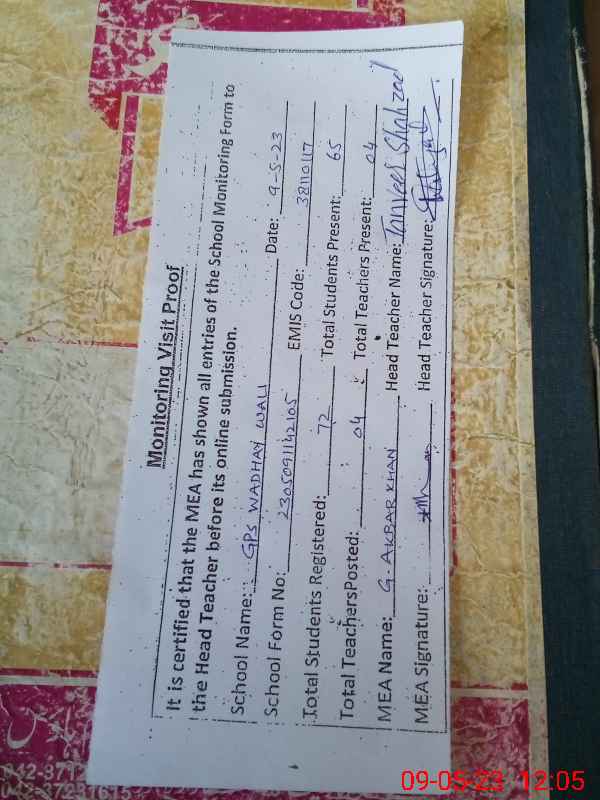 Monitoring Visit Proof
It is certified that the MEA has shown all entries of the School Monitoring Form to
the Head Teacher before its online submission.
School Name: GPS WADHAY WALI Date: 9-5-23
School Form No: 2305091142105 EMIS Code: 38110117
Total Students Registered: 72 Total Students Present: 65
Total Teachers Posted: 04 Total Teachers Present: 04
MEA Name: G. AKBAR KHAN Head Teacher Name: Tanveer Shahzad
MEA Signature: Head Teacher Signature:
042-37231615
09-05-23 12:05